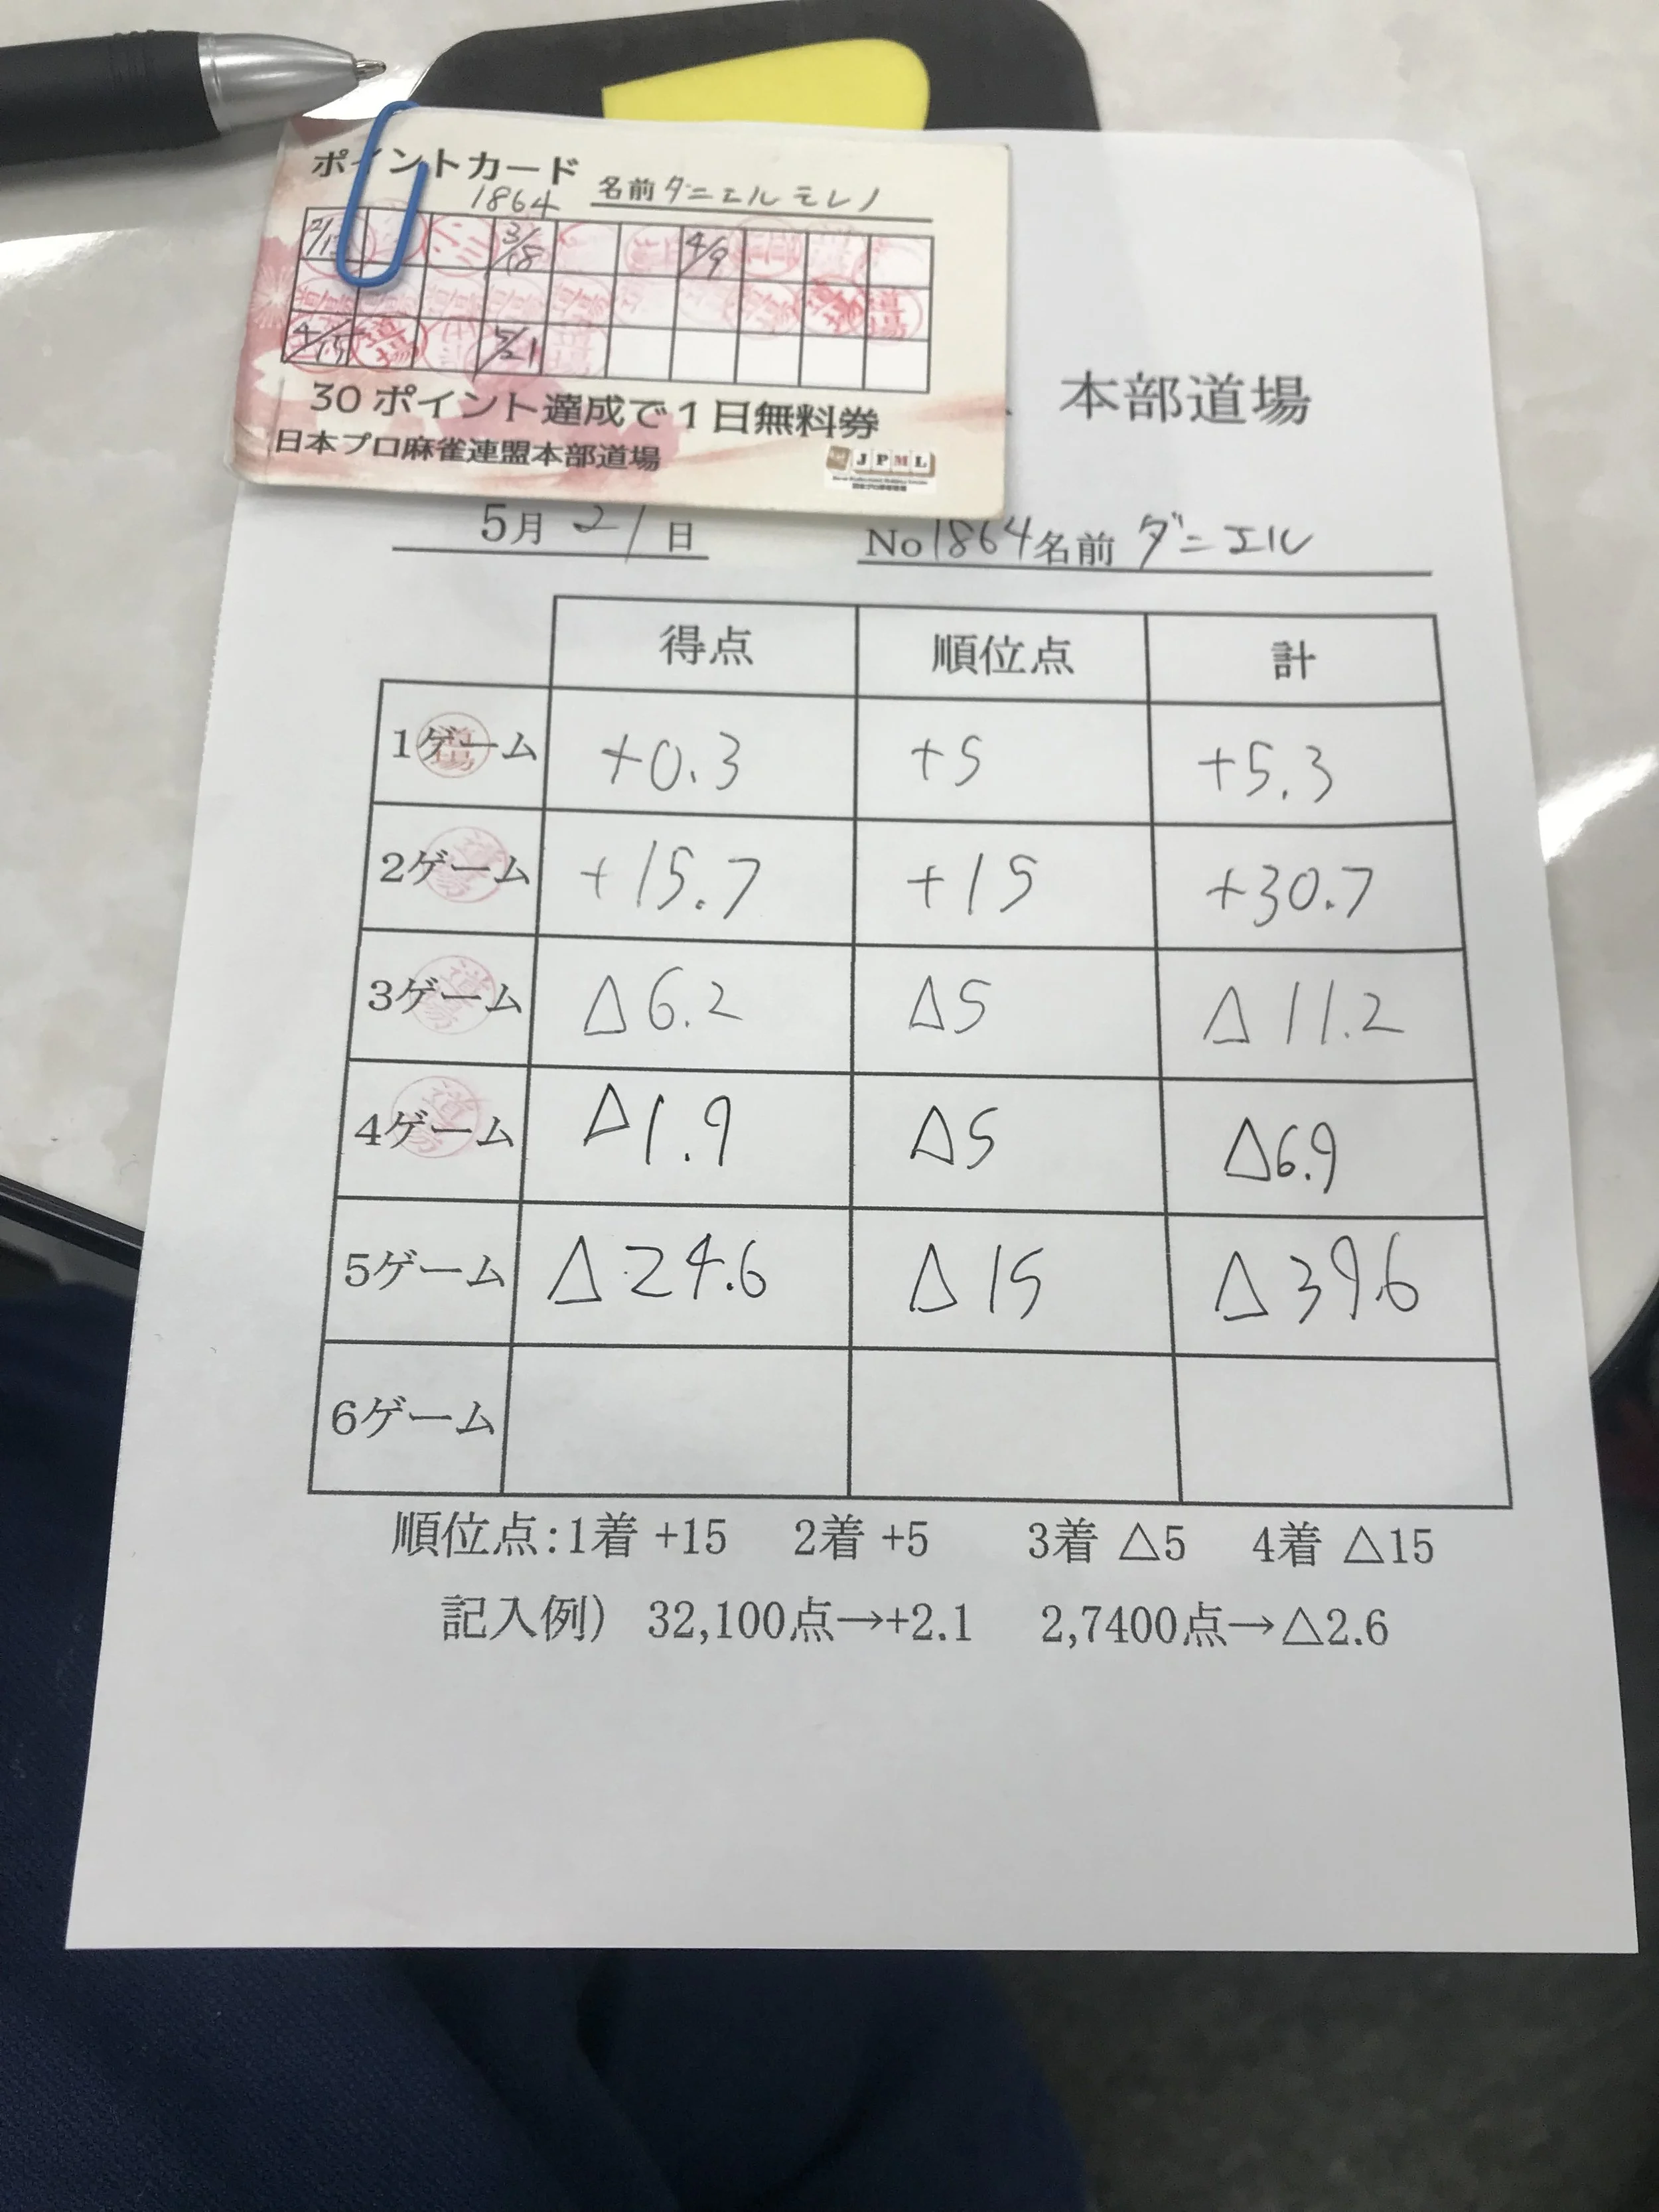 ポイントカード
1864
名前 ダニエル モレノ
3/18 4/9
4/15 5/21
30 ポイント達成で1日無料券
日本プロ麻雀連盟本部道場
JPML
本部道場
5月 21日 No 1864 名前 ダニエル
得点 順位点 計
1ゲーム +0.3 +5 +5.3
2ゲーム +15.7 +15 +30.7
3ゲーム △6.2 △5 △11.2
4ゲーム △1.9 △5 △6.9
5ゲーム △24.6 △15 △39.6
6ゲーム
順位点:1着 +15 2着 +5 3着 △5 4着 △15
記入例) 32,100点→+2.1 2,7400点→△2.6